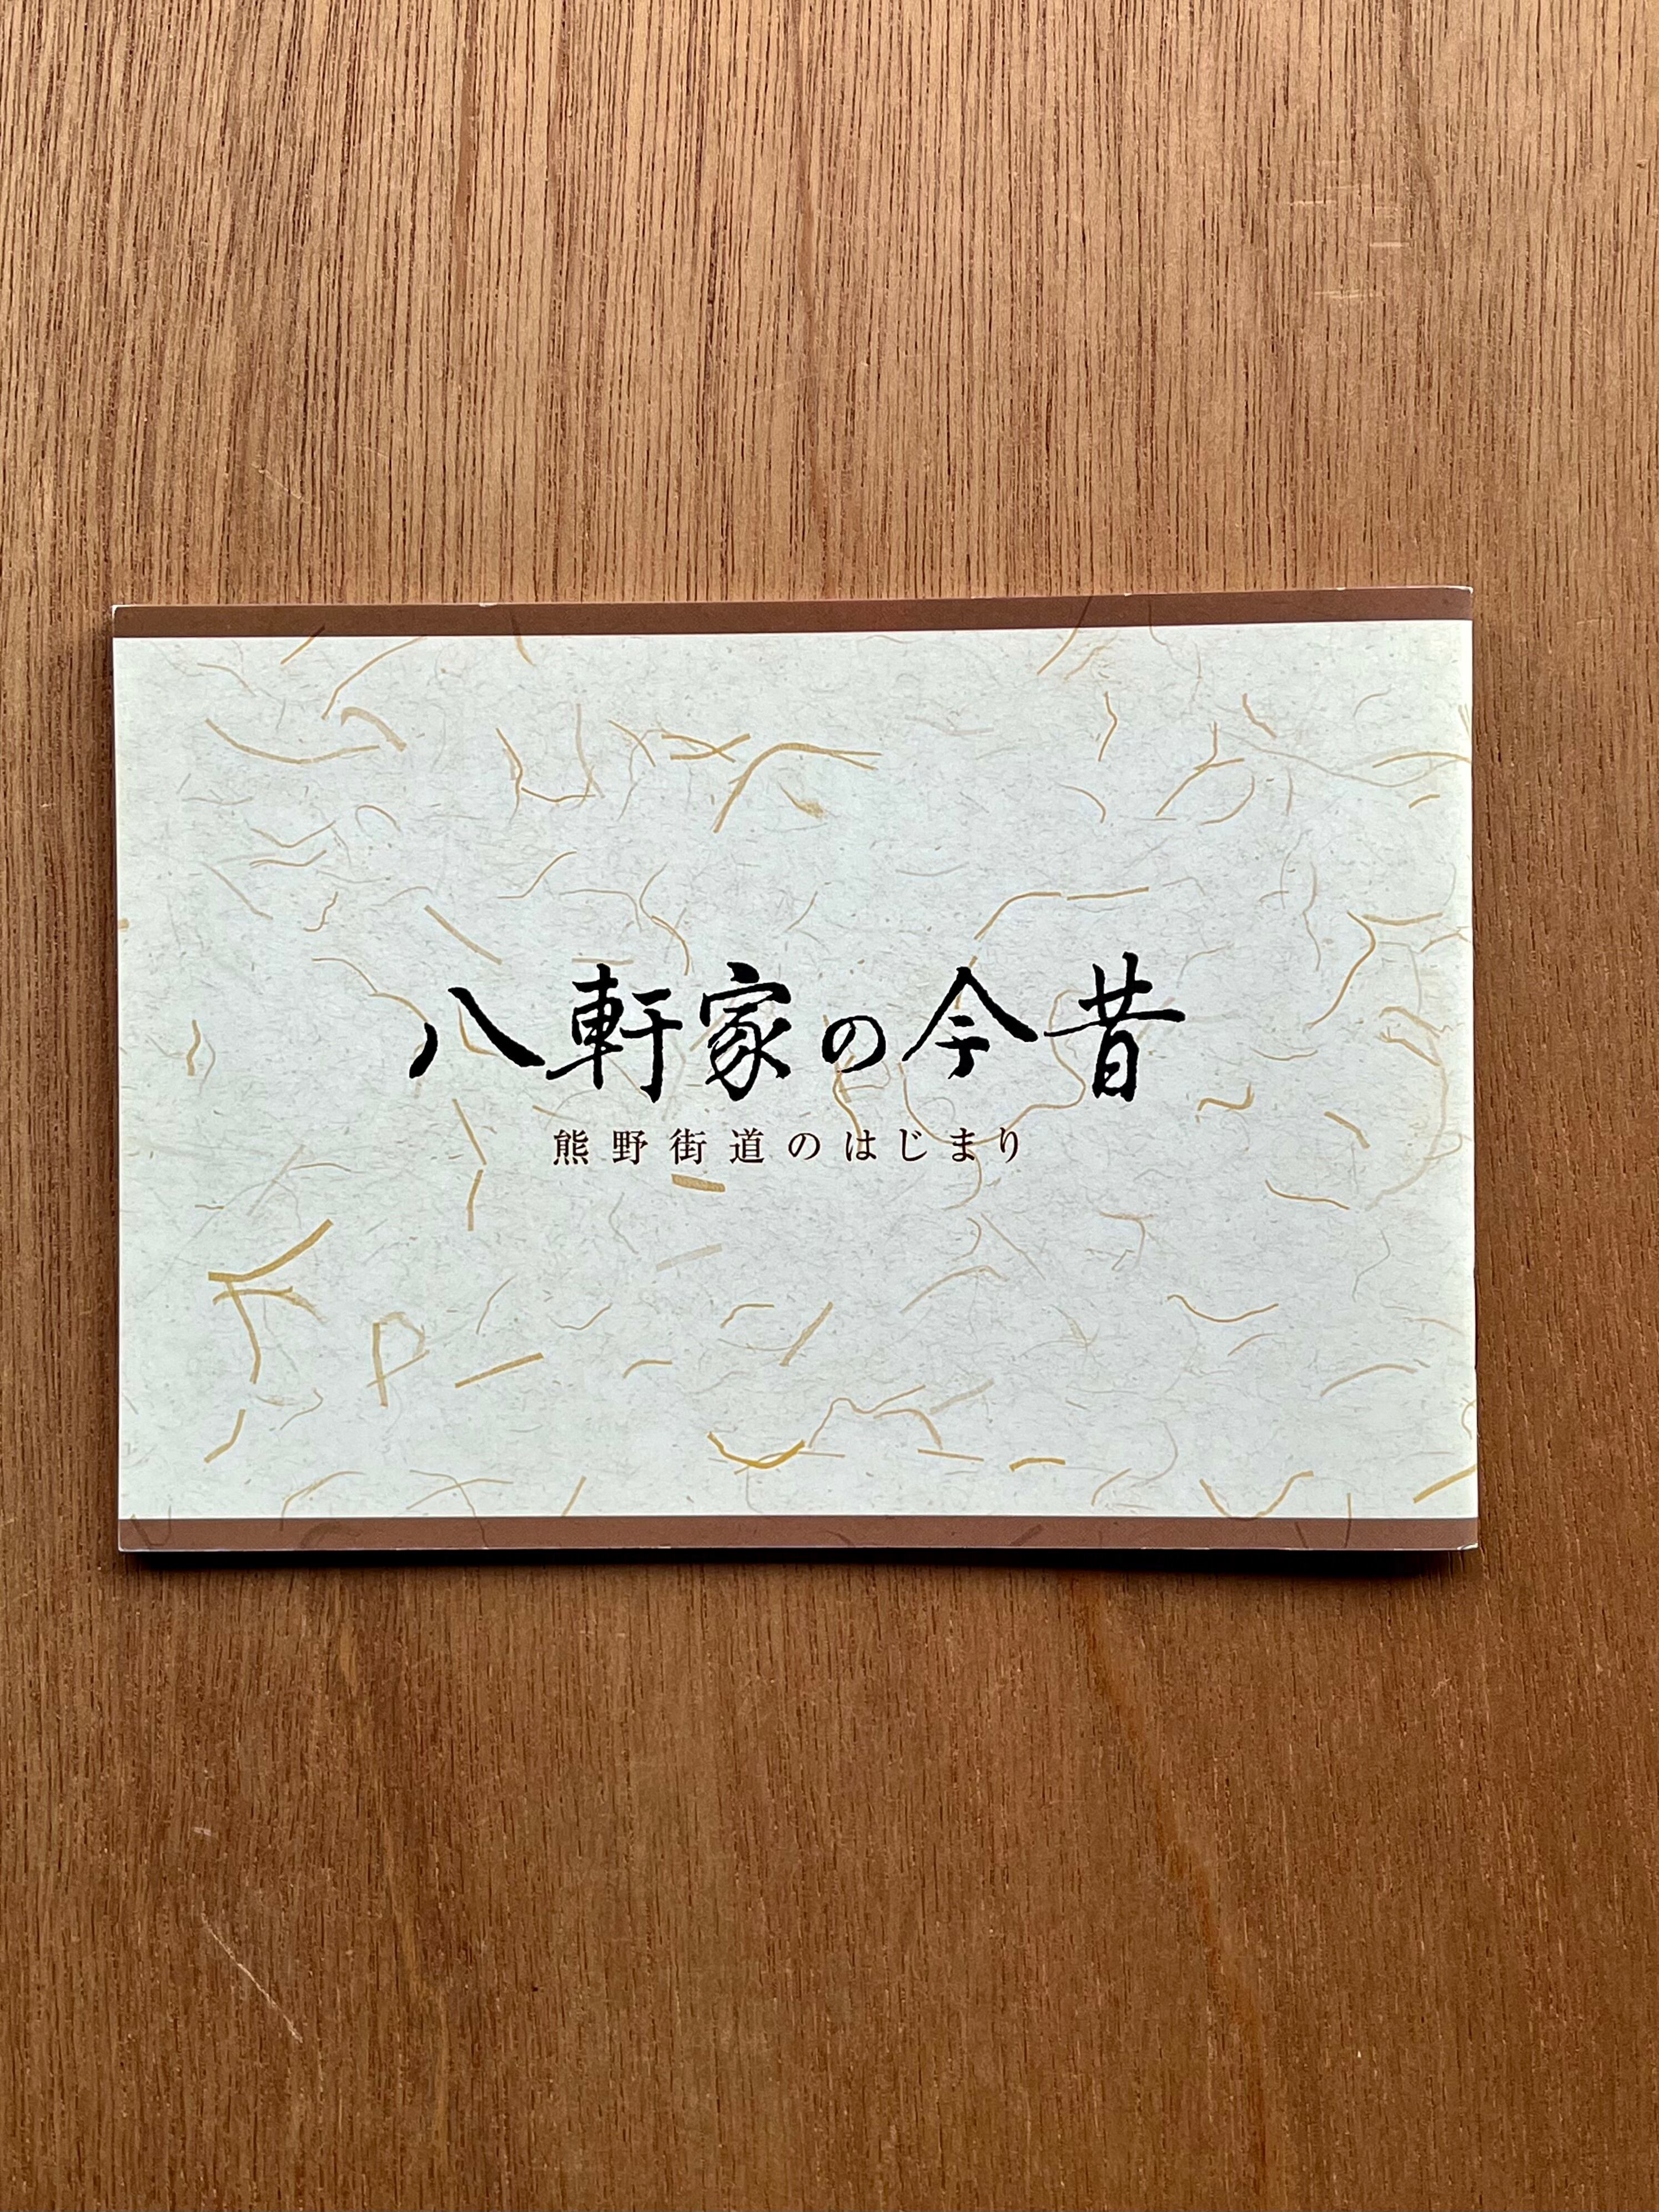 八軒家の今昔
熊野街道のはじまり